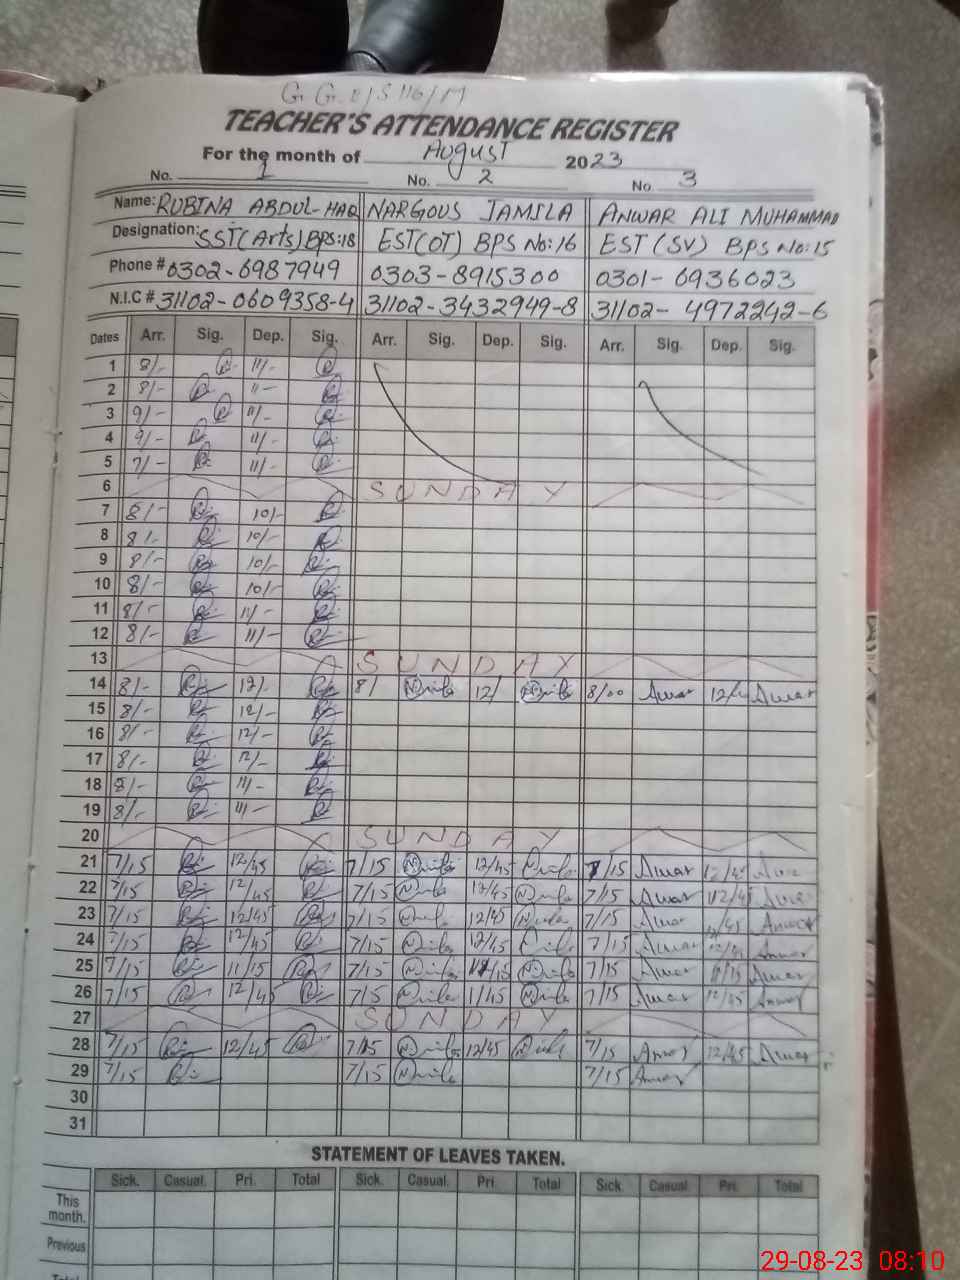 G. G. E/S 116/M
TEACHER'S ATTENDANCE REGISTER
For the month of August 2023
No. 1 No. 2 No. 3
Name: RUBINA ABDUL-HAQ NARGOUS JAMILA ANWAR ALI MUHAMMAD
Designation: SST(Arts) BPS:18 EST(OT) BPS No:16 EST(SV) BPS No:15
Phone # 0302-6987949 0303-8915300 0301-6936023
N.I.C # 31102-0609358-4 31102-3432949-8 31102-4972242-6
Dates Arr. Sig. Dep. Sig. Arr. Sig. Dep. Sig. Arr. Sig. Dep. Sig.
1 8/- 11/-
2 8/- 11-
3 9/- 11/-
4 9/- 11/-
5 7/- 11/-
6 SUNDAY
7 8/- 10/-
8 8/- 10/-
9 8/- 10/-
10 8/- 10/-
11 8/- 11/-
12 8/- 11/-
13 SUNDAY
14 8/- 12/- 8/ 12/ 8/00 Anwar Anwar
15 8/- 12/-
16 8/- 12/-
17 8/- 12/-
18 8/- 11/-
19 8/- 11/-
20 SUNDAY
21 7/15 12/45 7/15 12/45 7/15 Anwar 12/45
22 7/15 12/45 7/15 12/45 7/15 Anwar 12/45
23 7/15 12/45 7/15 12/45 7/15 Anwar Anwar
24 7/15 12/45 7/15 12/45 7/15 Anwar Anwar
25 7/15 11/15 7/15 7/15 Anwar 11/15 Anwar
26 7/15 12/45 7/15 1/45 7/15 Anwar 12/45 Anwar
27 SUNDAY
28 7/15 12/45 7/15 12/45 7/15 Anwar 12/45 Anwar
29 7/15 7/15 7/15 Anwar
30
31
STATEMENT OF LEAVES TAKEN.
Sick. Casual. Pri. Total Sick. Casual. Pri. Total Sick. Casual. Pri. Total
This
month.
Previous
Total
29-08-23 08:10